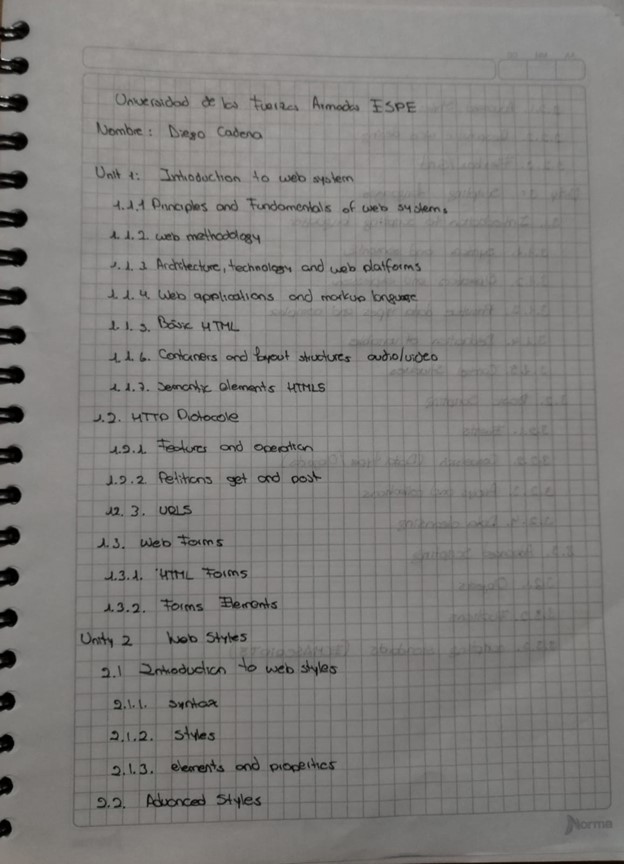 Universidad de las Fuerzas Armadas ESPE
Nombre: Diego Cadena
Unit 1: Introduction to web system
1.1.1 Principles and Fundamentals of web systems
1.1.2. web methodology
1.1.3. Architecture, technology and web platforms
1.1.4. Web applications and markup language
1.1.5. Basic HTML
1.1.6. Containers and layout structures audio/video
1.1.7. Semantic elements HTML5
1.2. HTTP Protocole
1.2.1 Features and operation
1.2.2 Petitions get and post
12.3. URLS
1.3. Web Forms
1.3.1. HTML Forms
1.3.2. Forms Elements
Unity 2 Web Styles
2.1 Introduction to web styles
2.1.1. syntax
2.1.2. Styles
2.1.3. elements and properties
2.2. Advanced Styles
Norma